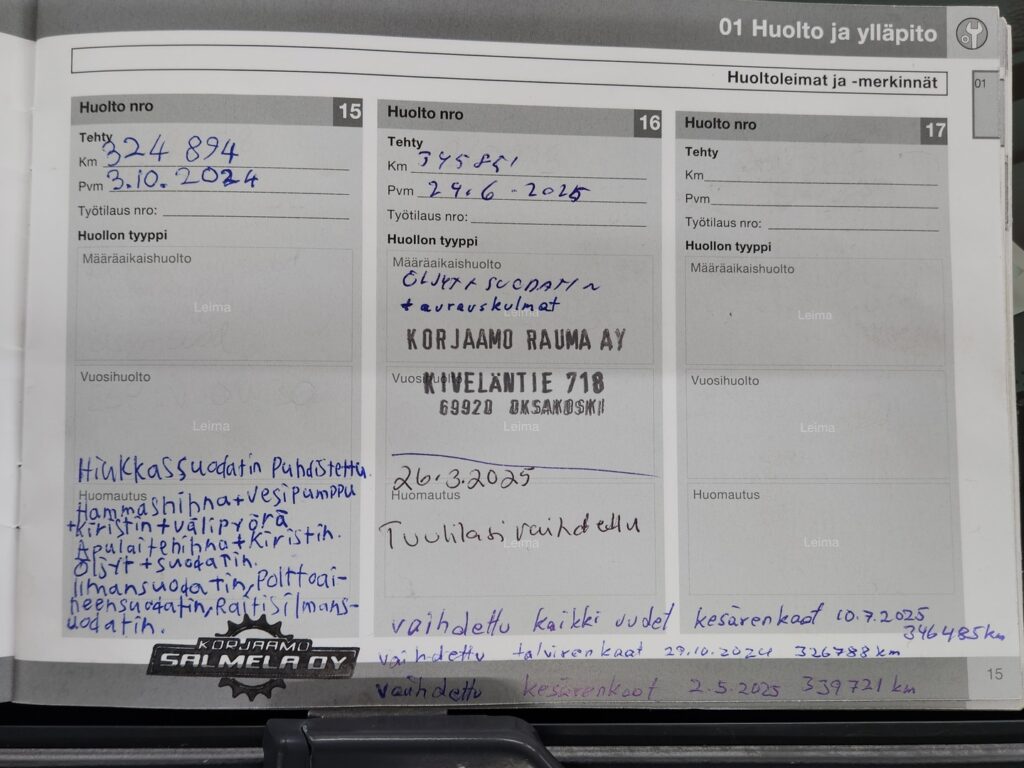 01 Huolto ja ylläpito
Huoltoleimat ja -merkinnät
01
Huolto nro 15
Tehty
Km 324 894
Pvm 3.10.2024
Työtilaus nro:
Huollon tyyppi
Määräaikaishuolto
Leima
Vuosihuolto
Leima
Hiukkassuodatin Puhdistettu.
Huomautus
Hammashihna+vesipumppu
+kiristin+välipyörä
Apulaitehihna+kiristin.
Öljyt+suodatin.
Ilmansuodatin, Polttoai-
neensuodatin, Raitisilmans-
uodatin.
KORJAAMO
SALMELA OY
Huolto nro 16
Tehty
Km 345851
Pvm 29.6.2025
Työtilaus nro:
Huollon tyyppi
Määräaikaishuolto
ÖLJYT+SUODATIN
+aurauskulmat
Leima
KORJAAMO RAUMA AY
Vuosihuolto
KIVELÄNTIE 718
69920 OKSAKOSKI
Leima
26.3.2025
Huomautus
Tuulilasi vaihdettu
Leima
Huolto nro 17
Tehty
Km
Pvm
Työtilaus nro:
Huollon tyyppi
Määräaikaishuolto
Leima
Vuosihuolto
Leima
Huomautus
Leima
vaihdettu kaikki uudet kesärenkaat 10.7.2025
346485km
vaihdettu talvirenkaat 29.10.2024 326788 km
vaihdettu kesärenkaat 2.5.2025 339721 km
15